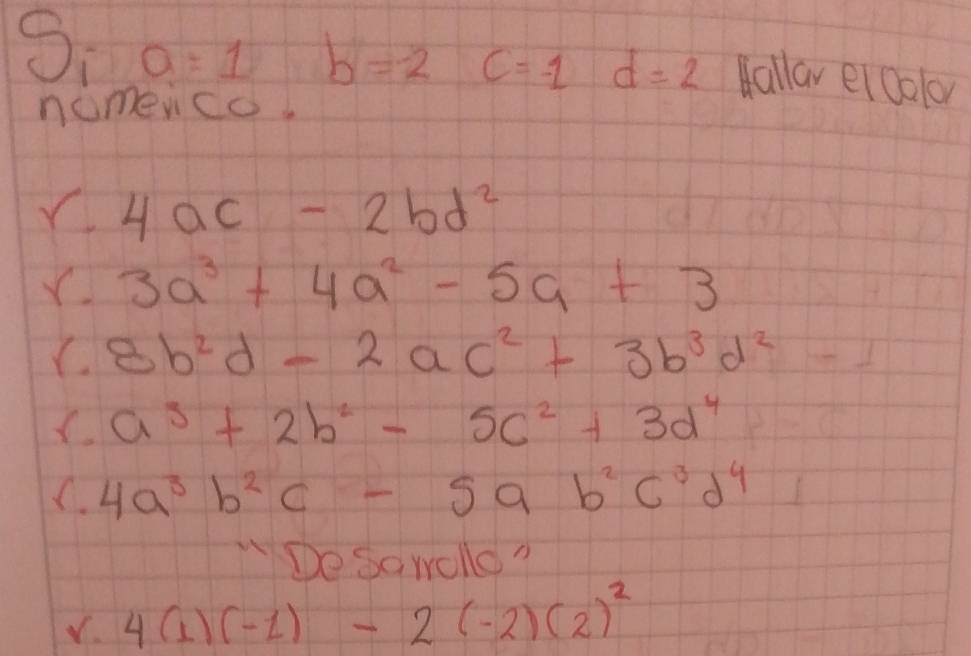 Si a=1 b=-2 c=-1 d=2 Hallar el valor
numerico.
r. 4ac - 2bd²
r. 3a³ + 4a² - 5a + 3
r. 8b²d - 2ac² + 3b³d²
r. a³ + 2b² - 5c² + 3d⁴
r. 4a³b²c - 5ab²c³d⁴
"Desarrollo"
r. 4(1)(-1) - 2(-2)(2)²